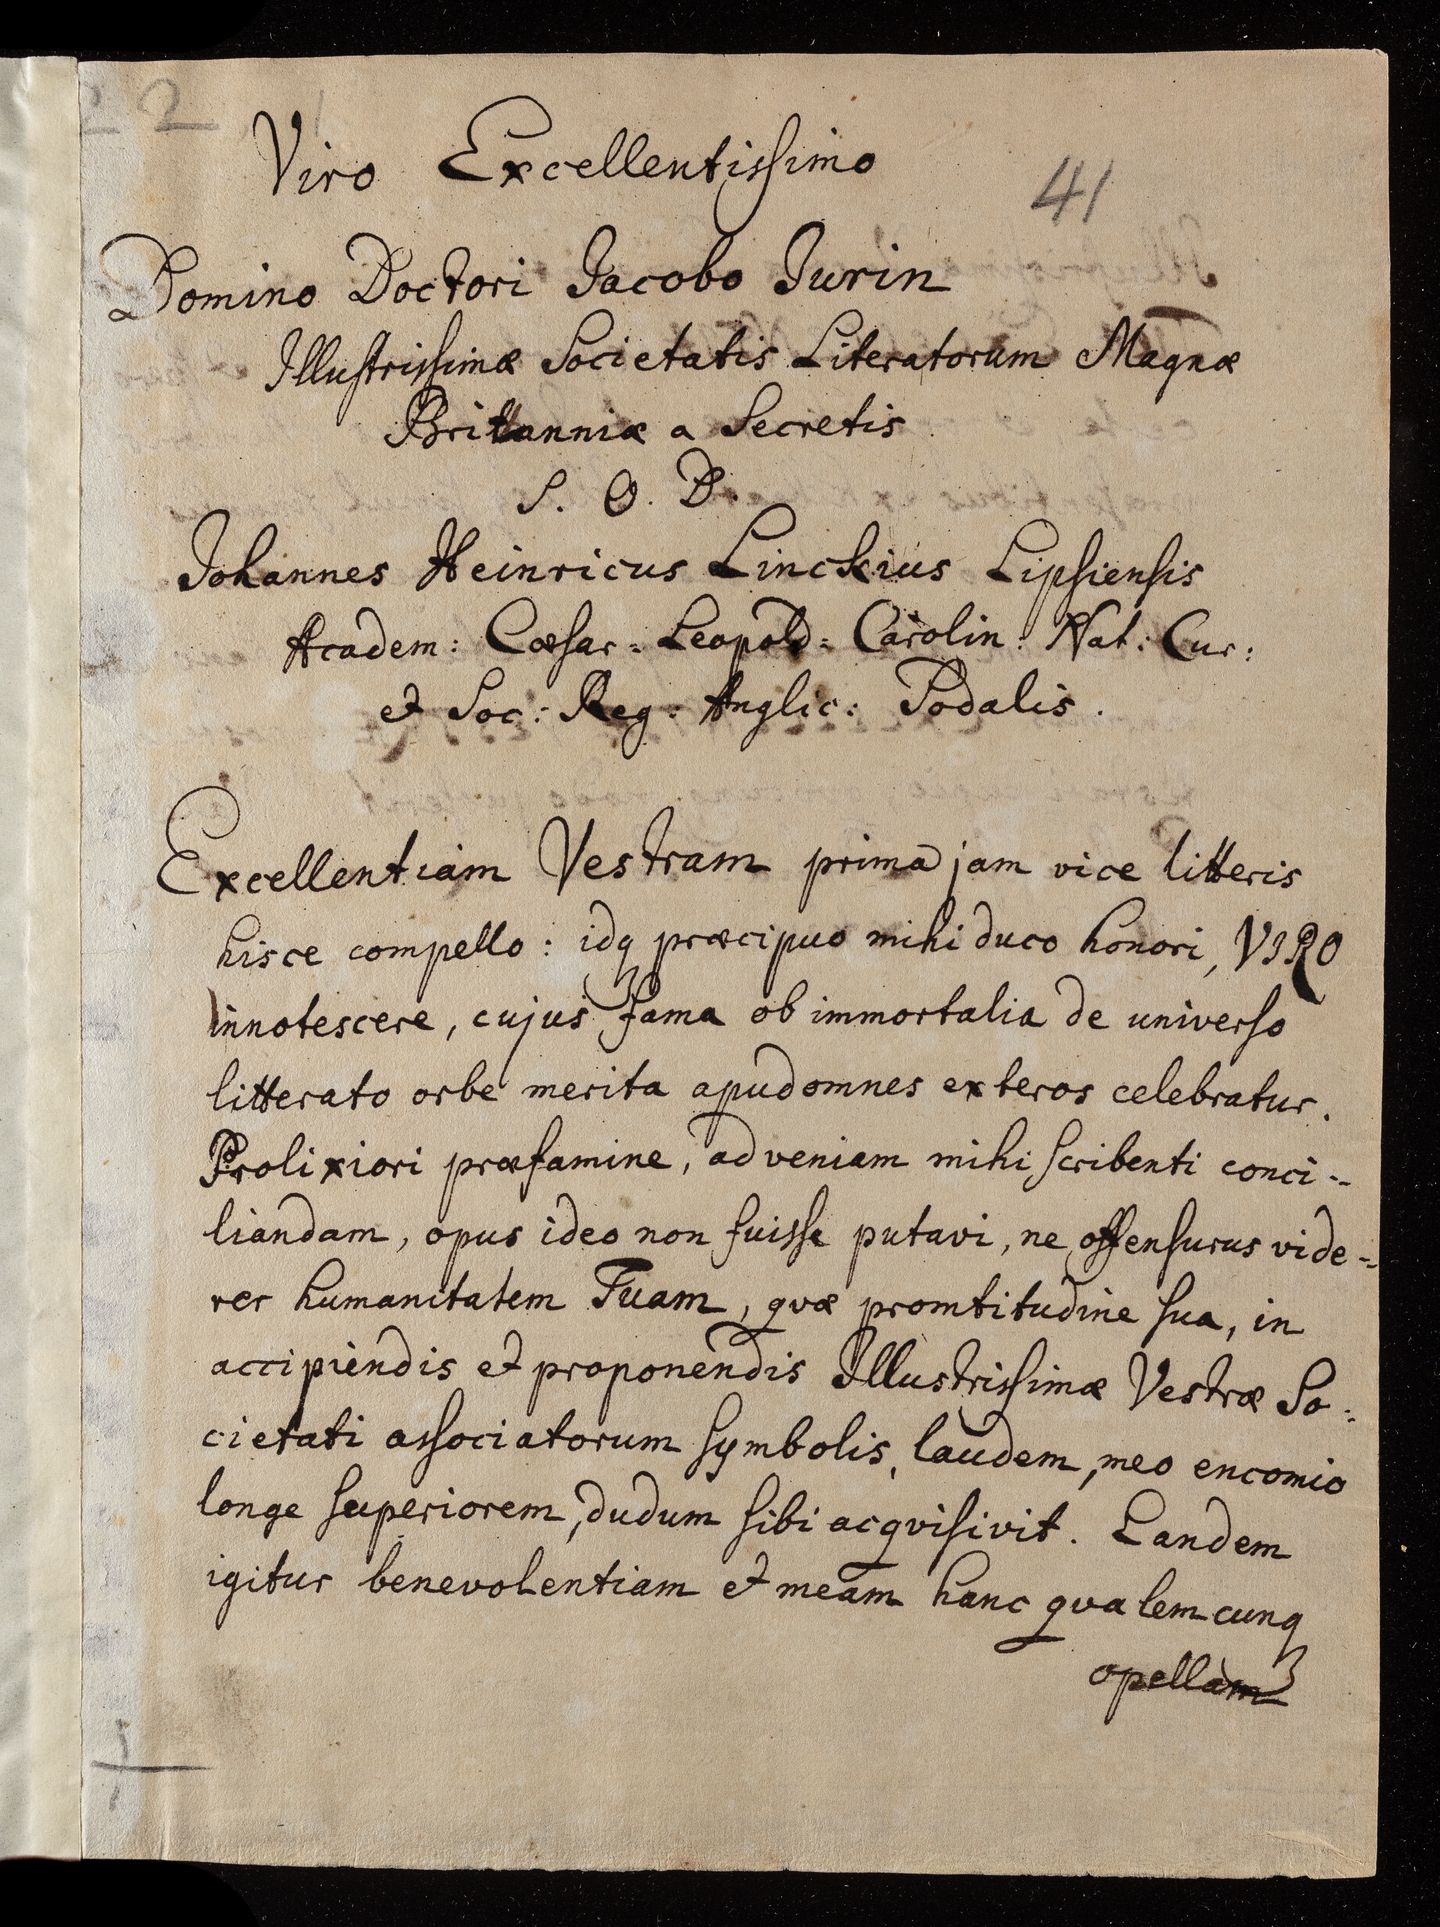 22
41
Viro Excellentissimo
Domino Doctori Jacobo Jurin
Illustrissimæ Societatis Literatorum Magnæ
Britanniæ a Secretis
S. O. D.
Johannes Heinricus Linckius Lipsiensis
Academ: Cæsar = Leopold = Carolin: Nat: Cur:
et Soc: Reg: Anglic: Sodalis.
Excellentiam Vestram prima jam vice litteris
hisce compello: idq præcipuo mihi duco honori, VIRO
innotescere, cujus fama ob immortalia de universo
litterato orbe merita apud omnes exteros celebratur.
Prolixiori præfamine, ad veniam mihi scribenti conci-
liandam, opus ideo non fuisse putavi, ne offensurus vide=
rer humanitatem Tuam, qvæ promtitudine sua, in
accipiendis et proponendis Illustrissimæ Vestræ So=
cietati associatorum symbolis, laudem, meo encomio
longe superiorem, dudum sibi acqvisivit. Eandem
igitur benevolentiam et meam hanc qvalemcunq
opellam